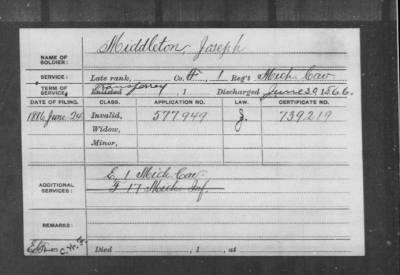 NAME OF SOLDIER: Middleton, Joseph
SERVICE: Late rank, Co. H, 1 Reg't Mich Cav
TERM OF SERVICE, Enlisted , 1 Discharged June 30 1866.
DATE OF FILING. CLASS. APPLICATION NO. LAW. CERTIFICATE NO.
1886 June, 24 Invalid, 577949 J. 739219
Widow,
Minor,
ADDITIONAL SERVICES: E, 1 Mich Cav
F 17 Mich Inf.
REMARKS:
Died , 1 , at